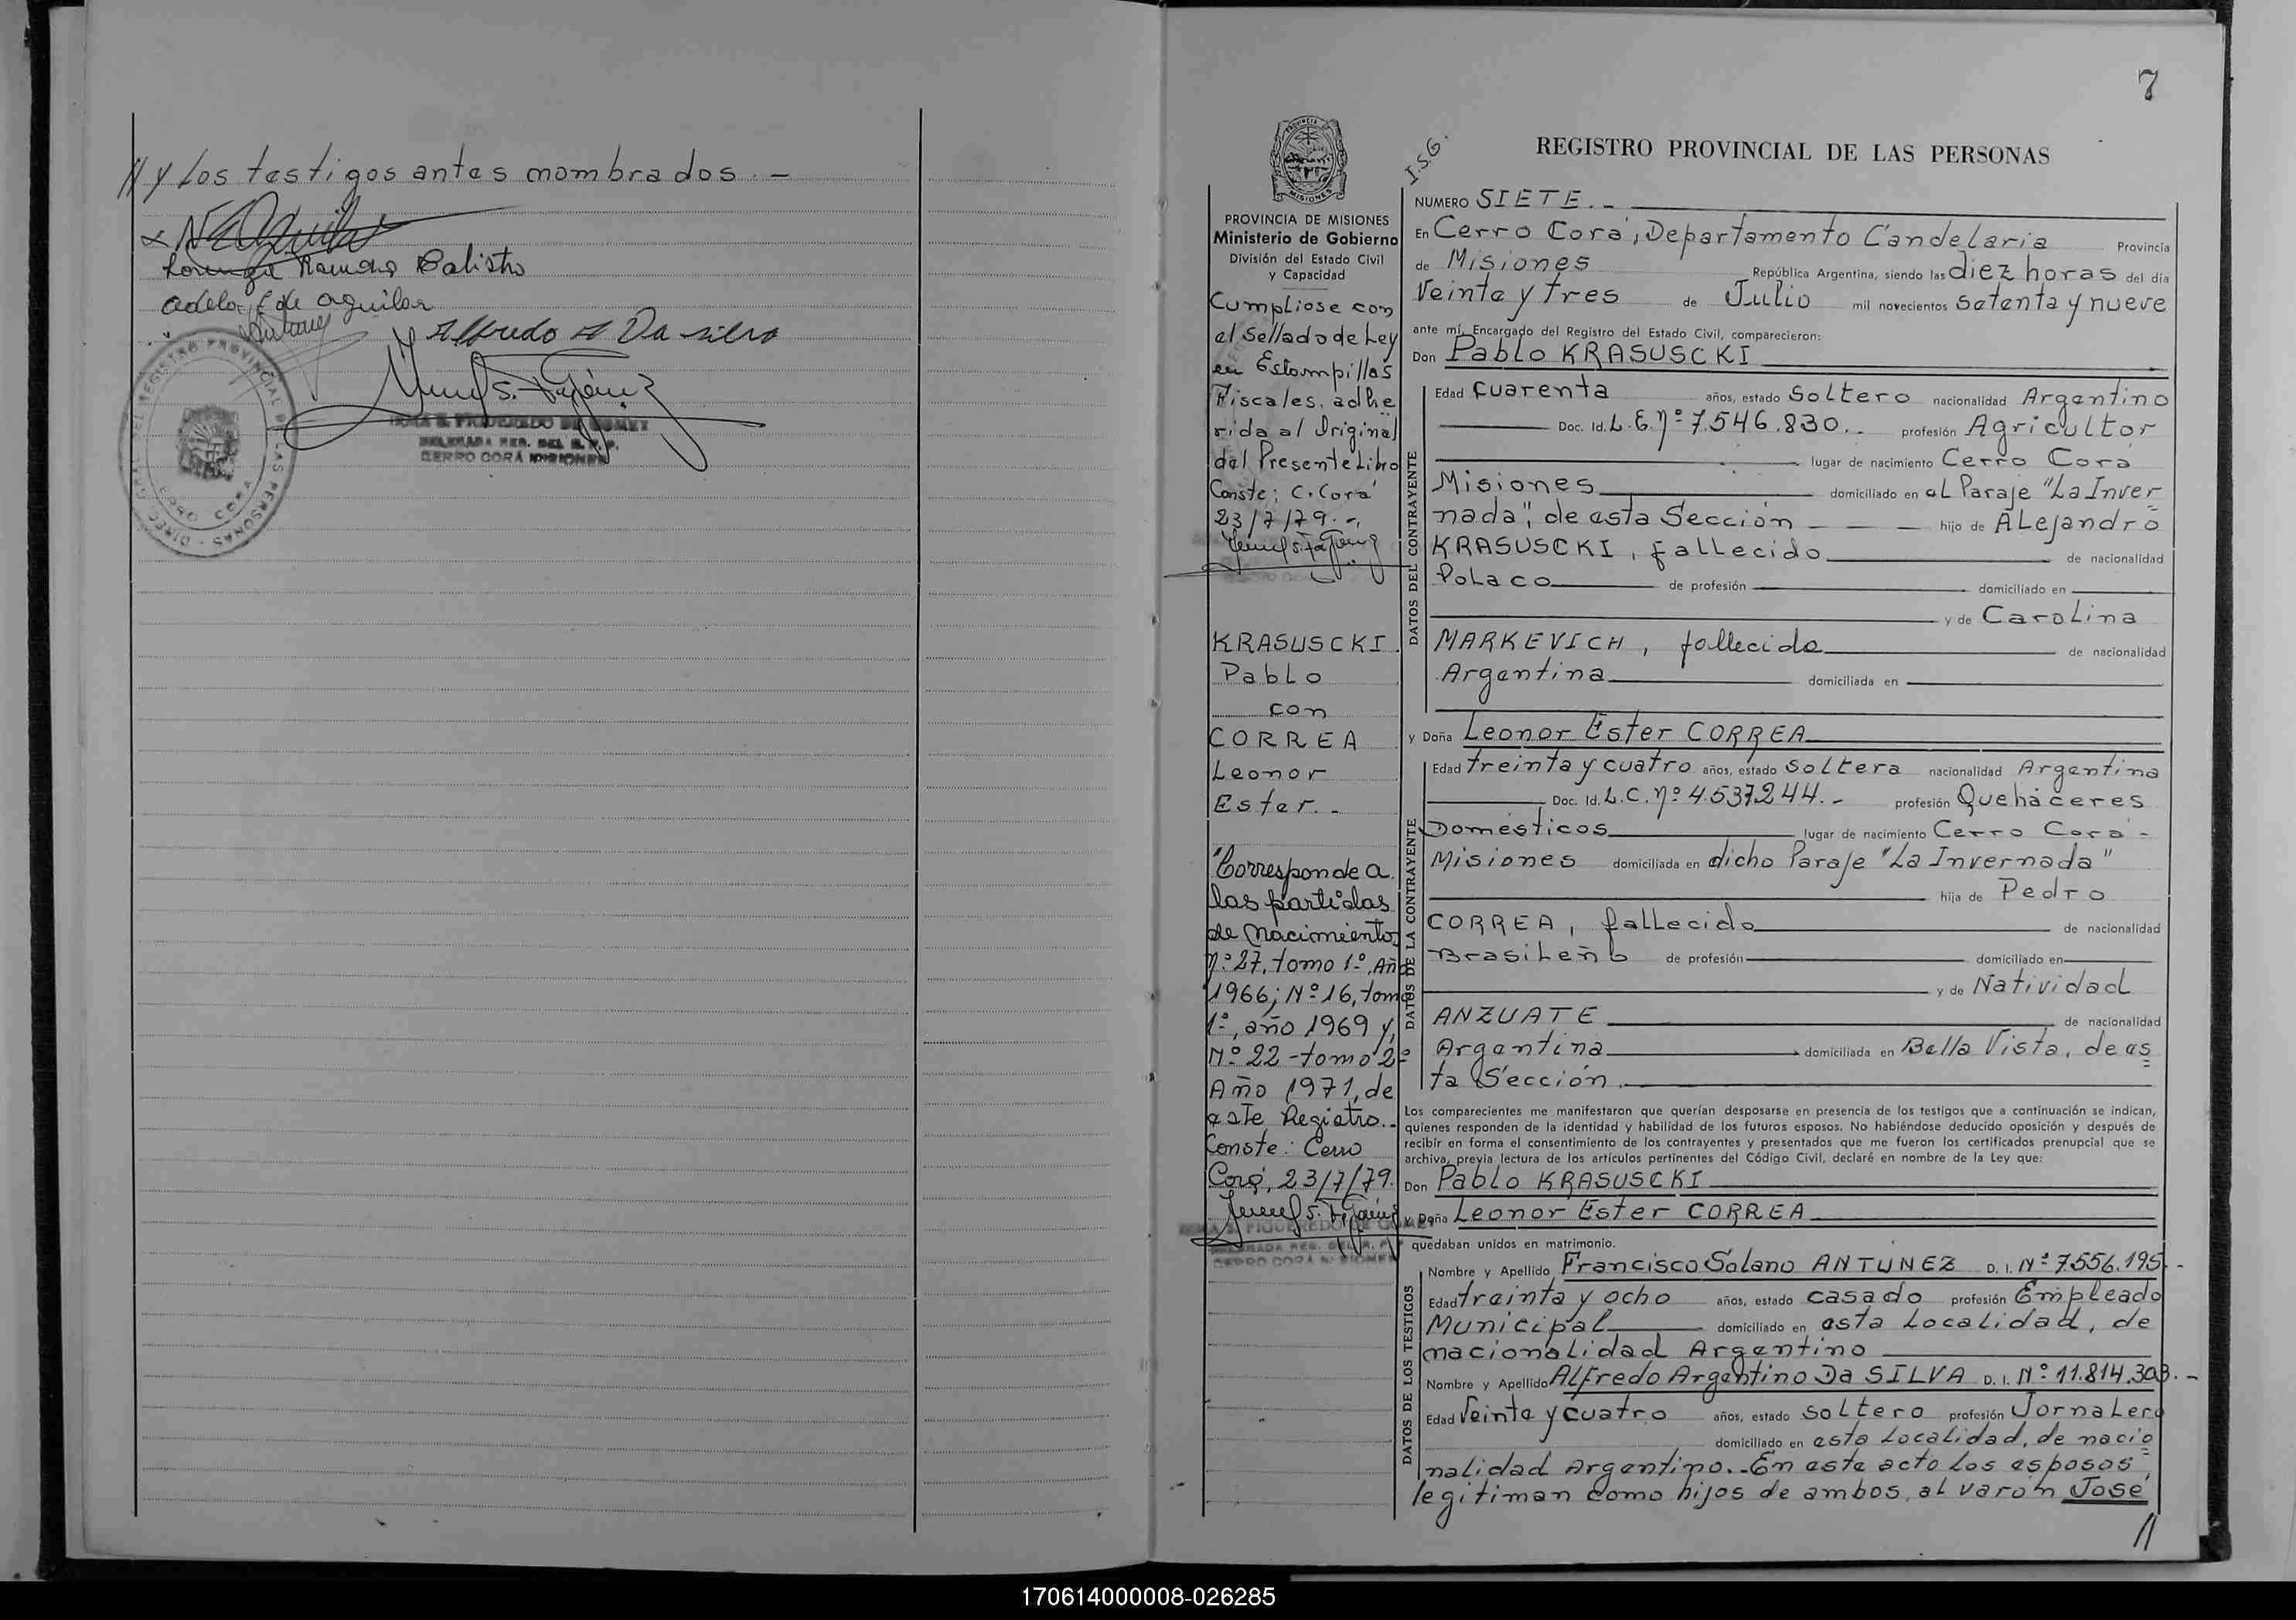 // y Los testigos antes nombrados. -
Lorenza Ramona Balistro
Adela E de Aguilar
Alfredo A Da Silva
IRMA S. FIGUEREDO DE GOMEZ
DELEGADA REG. DEL R. P. P.
CERRO CORÁ MISIONES
7
I.S.G.
REGISTRO PROVINCIAL DE LAS PERSONAS
PROVINCIA DE MISIONES
Ministerio de Gobierno
División del Estado Civil
y Capacidad
Cumpliose con
el Sellado de Ley
en Estampillas
Fiscales, adhe
rida al Original
del Presente Libro
Conste; C. Corá
23/7/79.-
KRASUSCKI
Pablo
con
CORREA
Leonor
Ester.-
"Corresponde a
las partidas
de Nacimiento
Nº 27, tomo 1º, Año
1966; Nº 16, tomo
1º, año 1969 y,
Nº 22 - tomo 2º
Año 1971, de
este Registro.-
Conste: Cerro
Corá, 23/7/79.
NUMERO SIETE.-
En Cerro Corá, Departamento Candelaria Provincia
de Misiones República Argentina, siendo las diez horas del día
Veinte y tres de Julio mil novecientos setenta y nueve
ante mí, Encargado del Registro del Estado Civil, comparecieron:
Don Pablo KRASUSCKI
DATOS DEL CONTRAYENTE
Edad Cuarenta años, estado Soltero nacionalidad Argentino
Doc. Id. L.E. Nº 7.546.830.- profesión Agricultor
lugar de nacimiento Cerro Corá
Misiones domiciliado en el Paraje "La Inver
nada", de esta Sección hijo de ALejandro
KRASUSCKI, fallecido de nacionalidad
Polaco de profesión domiciliado en
y de Carolina
MARKEVICH, fallecida de nacionalidad
Argentina domiciliada en
y Doña Leonor Ester CORREA
DATOS DE LA CONTRAYENTE
Edad treinta y cuatro años, estado Soltera nacionalidad Argentina
Doc. Id. L.C. Nº 4.537.244.- profesión Quehaceres
Domésticos lugar de nacimiento Cerro Corá -
Misiones domiciliada en dicho Paraje "La Invernada"
hija de Pedro
CORREA, fallecido de nacionalidad
Brasileño de profesión domiciliado en
y de Natividad
ANZUATE de nacionalidad
Argentina domiciliada en Bella Vista, de es
ta Sección.
Los comparecientes me manifestaron que querían desposarse en presencia de los testigos que a continuación se indican,
quienes responden de la identidad y habilidad de los futuros esposos. No habiéndose deducido oposición y después de
recibir en forma el consentimiento de los contrayentes y presentados que me fueron los certificados prenupcial que se
archiva, previa lectura de los artículos pertinentes del Código Civil, declaré en nombre de la Ley que:
Don Pablo KRASUSCKI
y Doña Leonor Ester CORREA
quedaban unidos en matrimonio.
DATOS DE LOS TESTIGOS
Nombre y Apellido Francisco Solano ANTUNEZ D. I. Nº 7.556.195.-
Edad treinta y ocho años, estado casado profesión Empleado
Municipal domiciliado en esta Localidad, de
nacionalidad Argentino
Nombre y Apellido Alfredo Argentino Da SILVA D. I. Nº 11.814.303.-
Edad Veinte y cuatro años, estado soltero profesión Jornalero
domiciliado en esta Localidad, de nacio
nalidad Argentino.- En este acto los esposos,
legitiman como hijos de ambos, al varón José
//
170614000008-026285